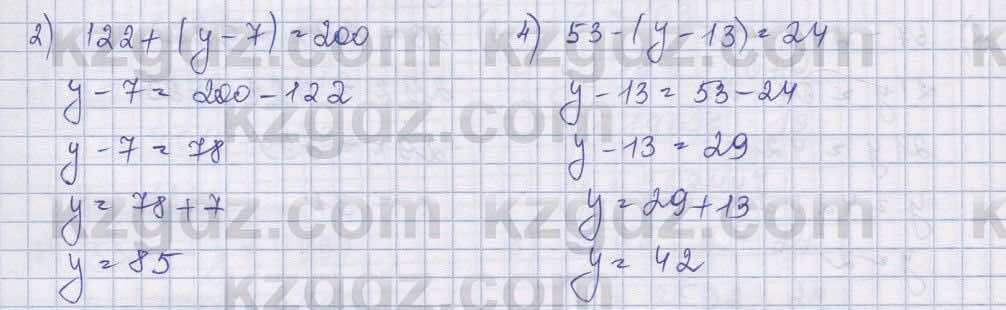 2) 122 + (y - 7) = 200
y - 7 = 200 - 122
y - 7 = 78
y = 78 + 7
y = 85
4) 53 - (y - 13) = 24
y - 13 = 53 - 24
y - 13 = 29
y = 29 + 13
y = 42
kzgdz.com
kzgdz.com
kzgdz.com
kzgdz.com
kzgdz.com
kzgdz.com
kzgdz.com
kzgdz.com